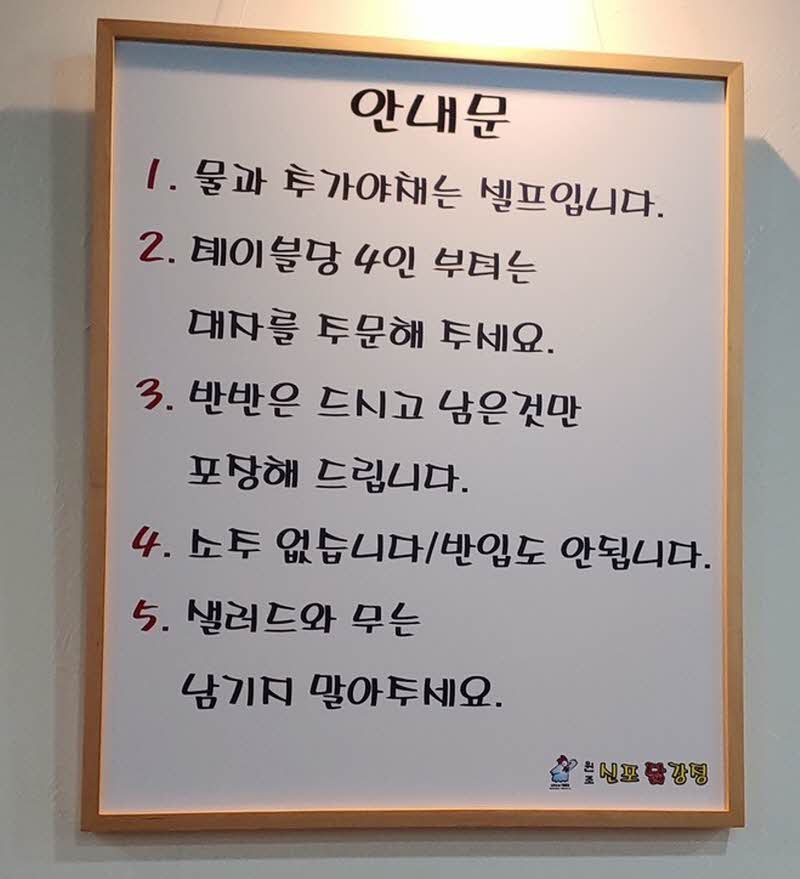 안내문
1. 물과 추가야채는 셀프입니다.
2. 테이블당 4인 부터는
대자를 주문해 주세요.
3. 반반은 드시고 남은것만
포장해 드립니다.
4. 소주 없습니다/반입도 안됩니다.
5. 샐러드와 무는
남기지 말아주세요.
원조 신포닭강정